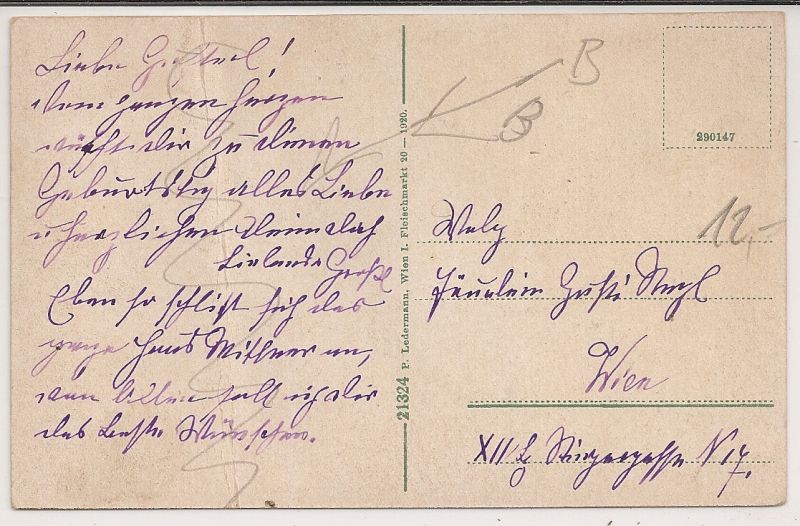 Liebe Gustel!
Vom ganzen Herzen
wünscht dir zu deinem
Geburtstag alles Liebe
u herzlichen
Liebende
Eben so schließt sich das
ganze Haus an,
von allen soll ich dir
das beste Wünschen.
21324 P. Ledermann, Wien I. Fleischmarkt 20 — 1920.
B
B
290147
12,-
Fräulein Gusti
Wien
XII/ N 17.